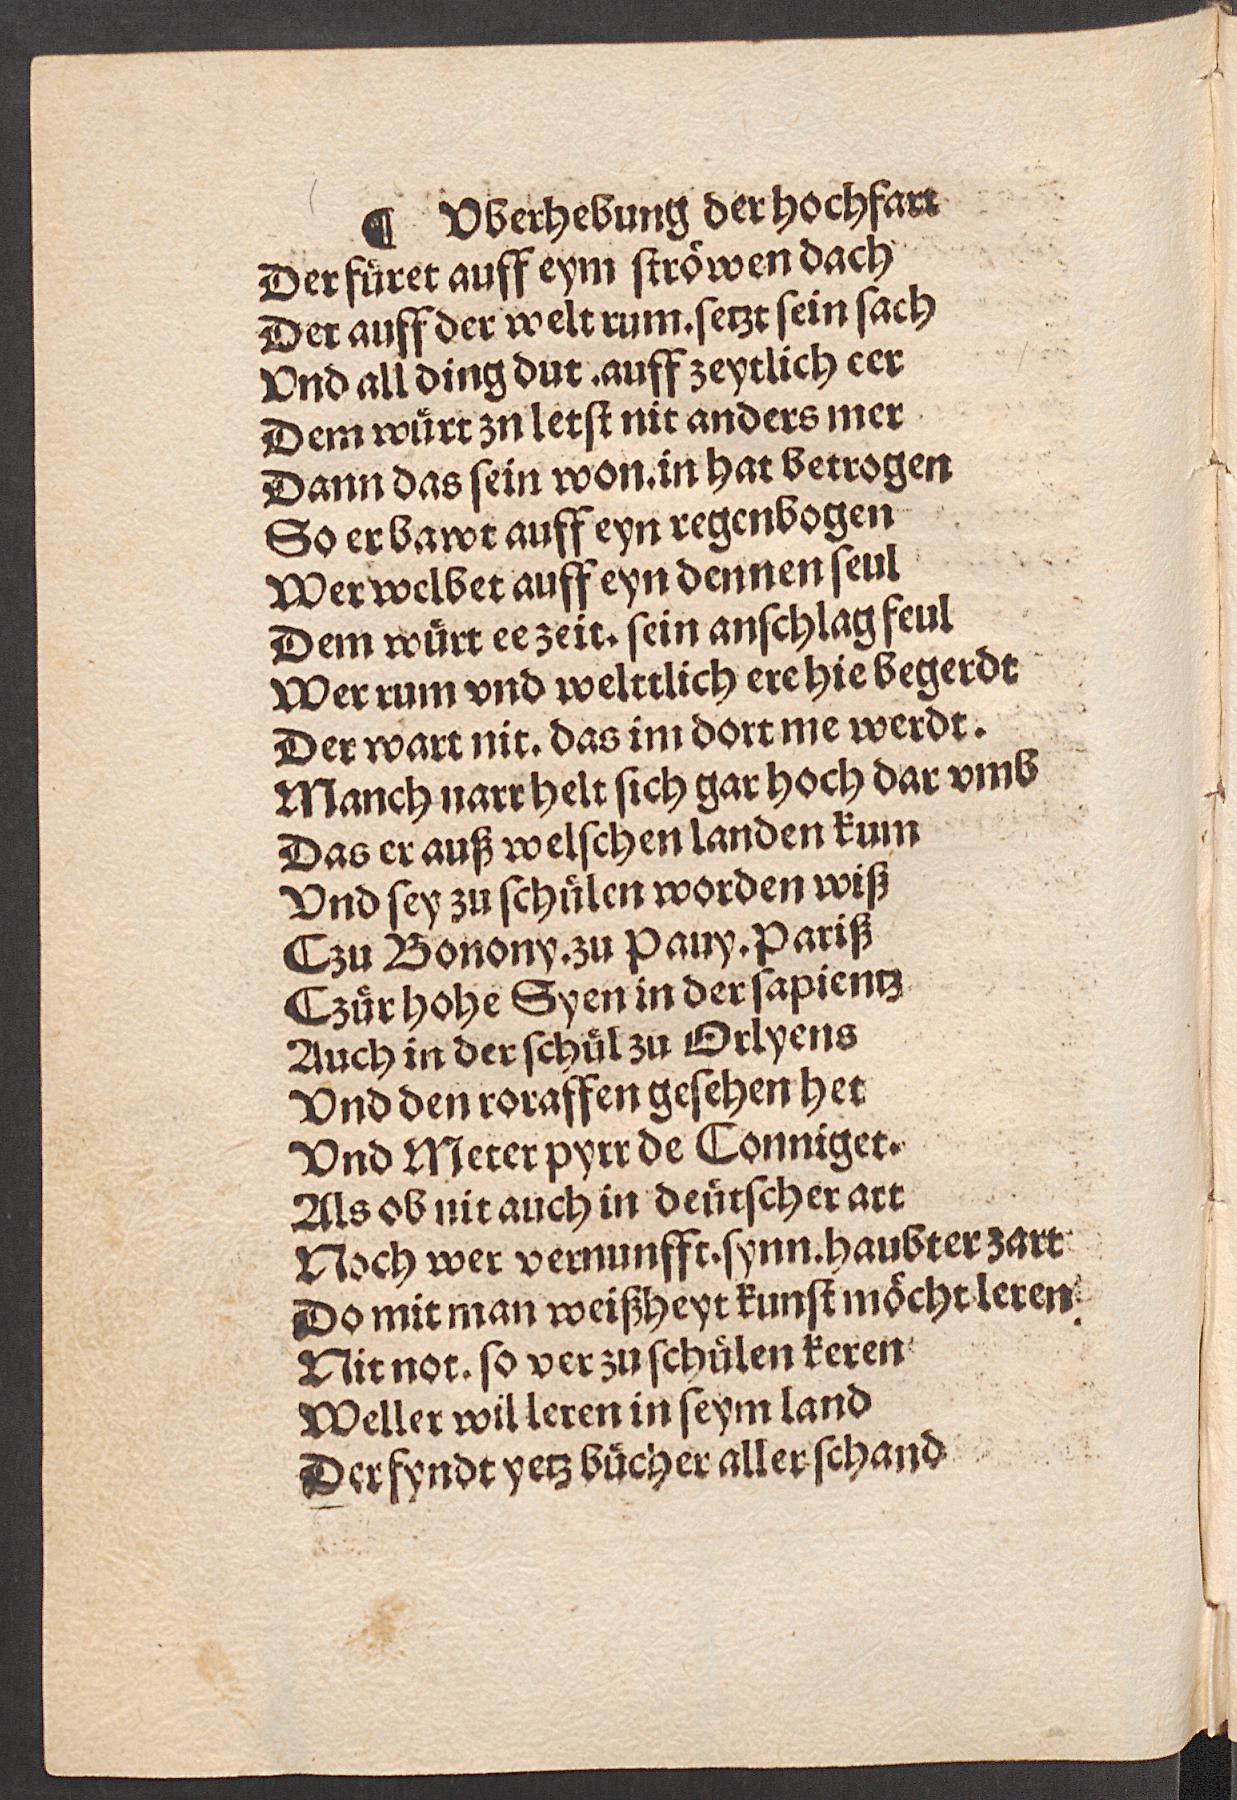 ¶ Vberhebung der hochfart
Der fu̎ret auff eym ströwen dach
Der auff der welt rum. setzt sein sach
Vnd all ding dut .auff zeytlich eer
Dem wu̎rt zn letst nit anders mer
Dann das sein won. in hat betrogen
So er bawt auff eyn regenbogen
Wer welbet auff eyn dennen seul
Dem wu̎rt ee zeit. sein anschlag feul
Wer rum vnd welttlich ere hie begerdt
Der wart nit. das im dort me werdt.
Manch narr helt sich gar hoch dar vmb
Das er auß welschen landen kum
Vnd sey zu schu̎len worden wiß
Czu Bonony. zu Pauy. Pariß
Czu̎r hohe Syen in der sapientz
Auch in der schu̎l zu Orlyens
Vnd den roraffen gesehen het
Vnd Meter pyrr de Conniget.
Als ob nit auch in deu̎tscher art
Noch wer vernunfft. synn. haubter zart
Do mit man weißheyt kunst möcht leren
Nit not. so ver zu schu̎len keren
Weller wil leren in seym land
Der fyndt yetz bu̎cher aller schand